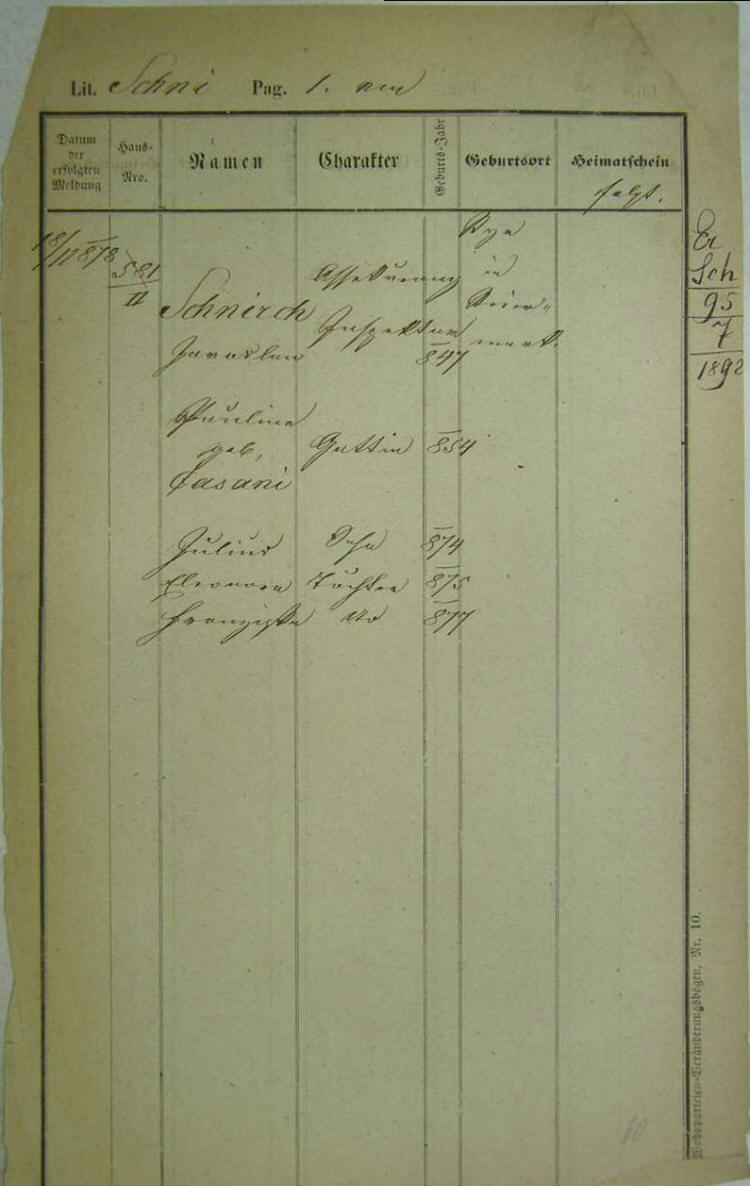 Lit. Schni Pag. 1.
Datum der erfolgten Meldung
Haus-Nro.
Namen
Charakter
Geburts-Jahr
Geburtsort
Heimatschein
folgt.
18/11 878
581
II
Schnirch
Jaroslau
Assekuranz
Inspektor
847
in
Steier-
mark.
Pauline
geb.
Casani
Gattin 854
Julius Sohn 874
Eleonora Tochter 875
Franziska dto 877
Sch
95
7
1892
Wohnparteien-Veränderungsbögen, Nr. 10.